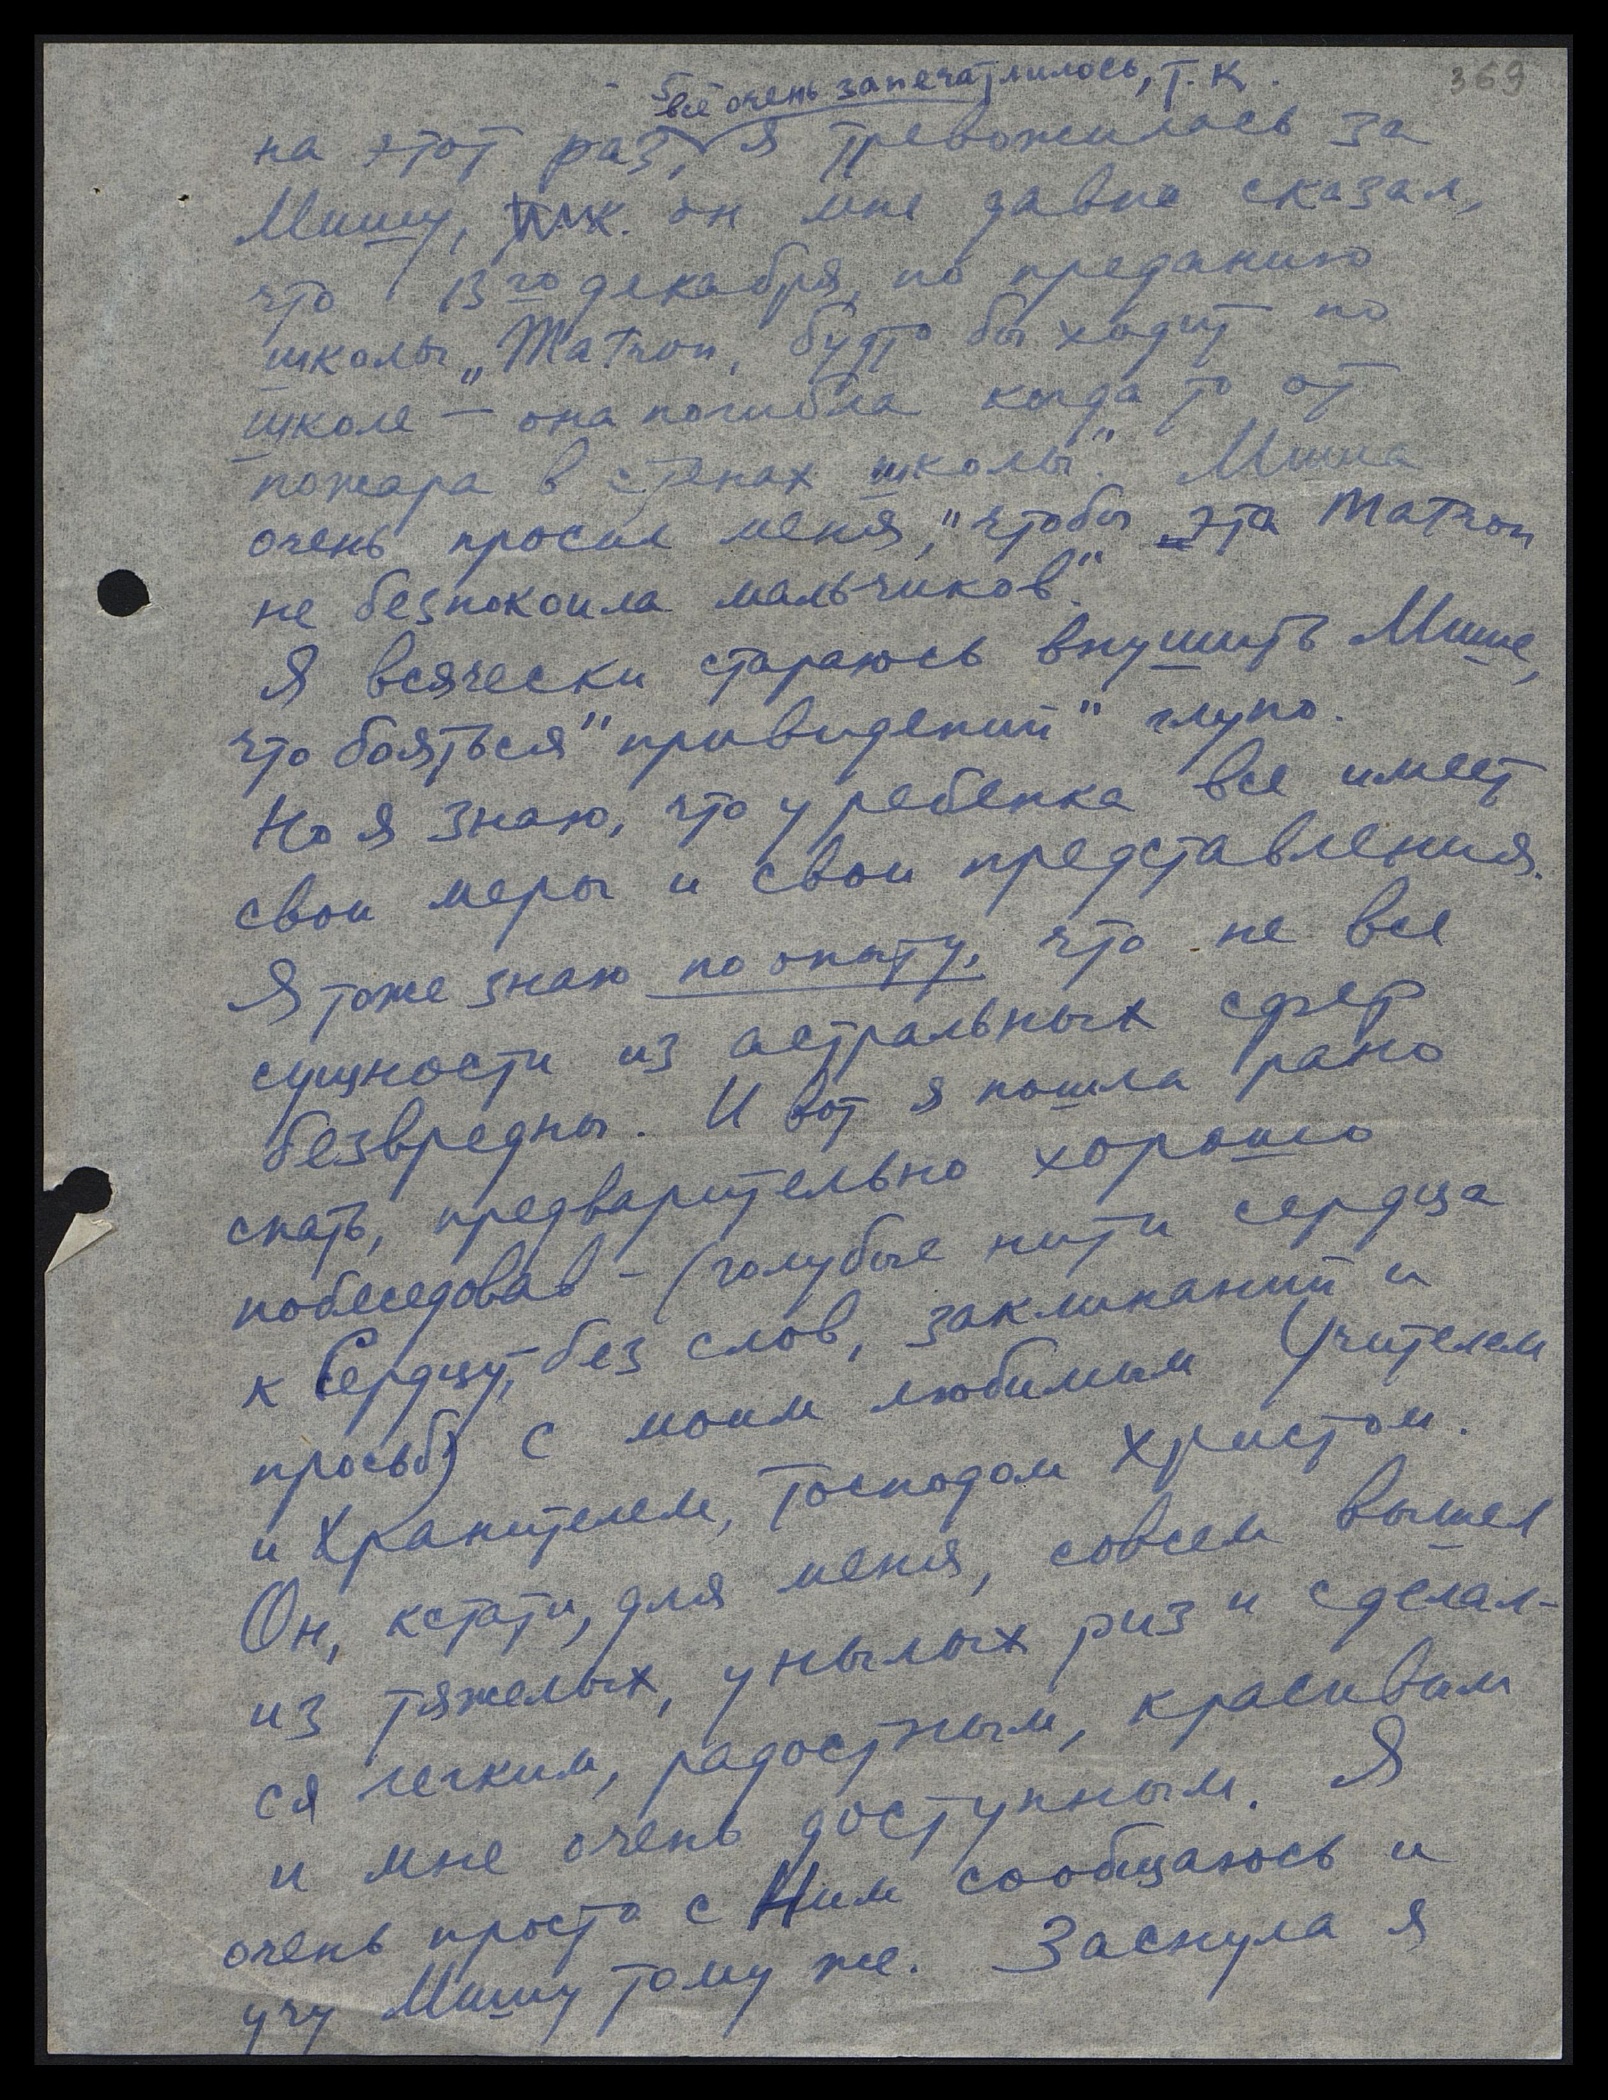 369
все очень запечатлилось, т.к.
на этот раз, я тревожилась за
Мишу, т.к. он мне давно сказал,
что 13го декабря, по преданию
школы „Matron, будто бы ходит по
школе — она погибла когда то от
пожара в стенах школы". Миша
очень просил меня, "чтобы эта Matron
не безпокоила мальчиков".
Я всячески стараюсь внушить Мише,
что бояться "привидений" глупо.
Но я знаю, что у ребенка все имеет
свои меры и свои представления.
Я тоже знаю по опыту, что не все
сущности из астральных сфер
безвредны. И вот я пошла рано
спать, предварительно хорошо
побеседовав – (голубые нити сердца
к Сердцу, без слов, заклинаний и
просьб) с моим любимым Учителем
и Хранителем, Господом Христом.
Он, кстати, для меня, совсем вышел
из тяжелых, унылых риз и сделал-
ся легким, радостным, красивым
и мне очень доступным. Я
очень просто с Ним сообщаюсь и
учу Мишу тому же. Заснула я